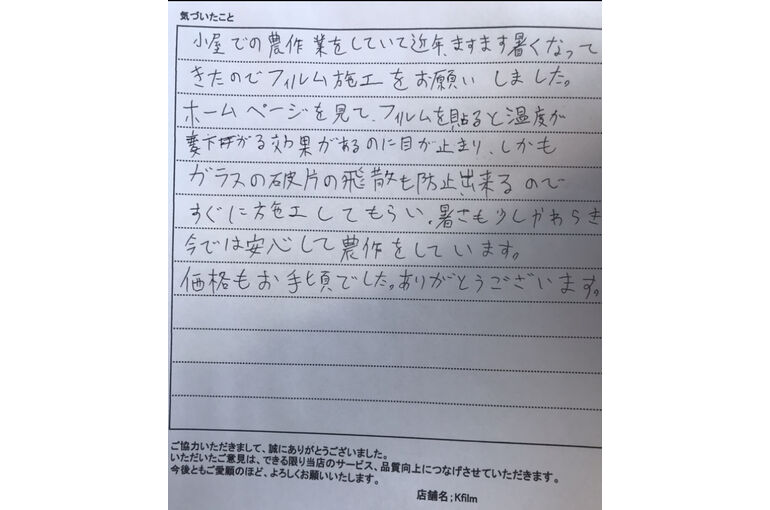 気づいたこと
小屋での農作業をしていて近年、ますます暑くなって
きたのでフィルム施工をお願いしました。
ホームページを見て、フィルムを貼ると温度が
下がる効果があるのに目が止まり、しかも
ガラスの破片の飛散も防止出来るので
すぐに施工してもらい、暑さも少しかわらき
今では安心して農作をしています。
価格もお手頃でした。ありがとうございます。
ご協力いただきまして、誠にありがとうございました。
いただいたご意見は、できる限り当店のサービス、品質向上につなげさせていただきます。
今後ともご愛顧のほど、よろしくお願いいたします。
店舗名;Kfilm